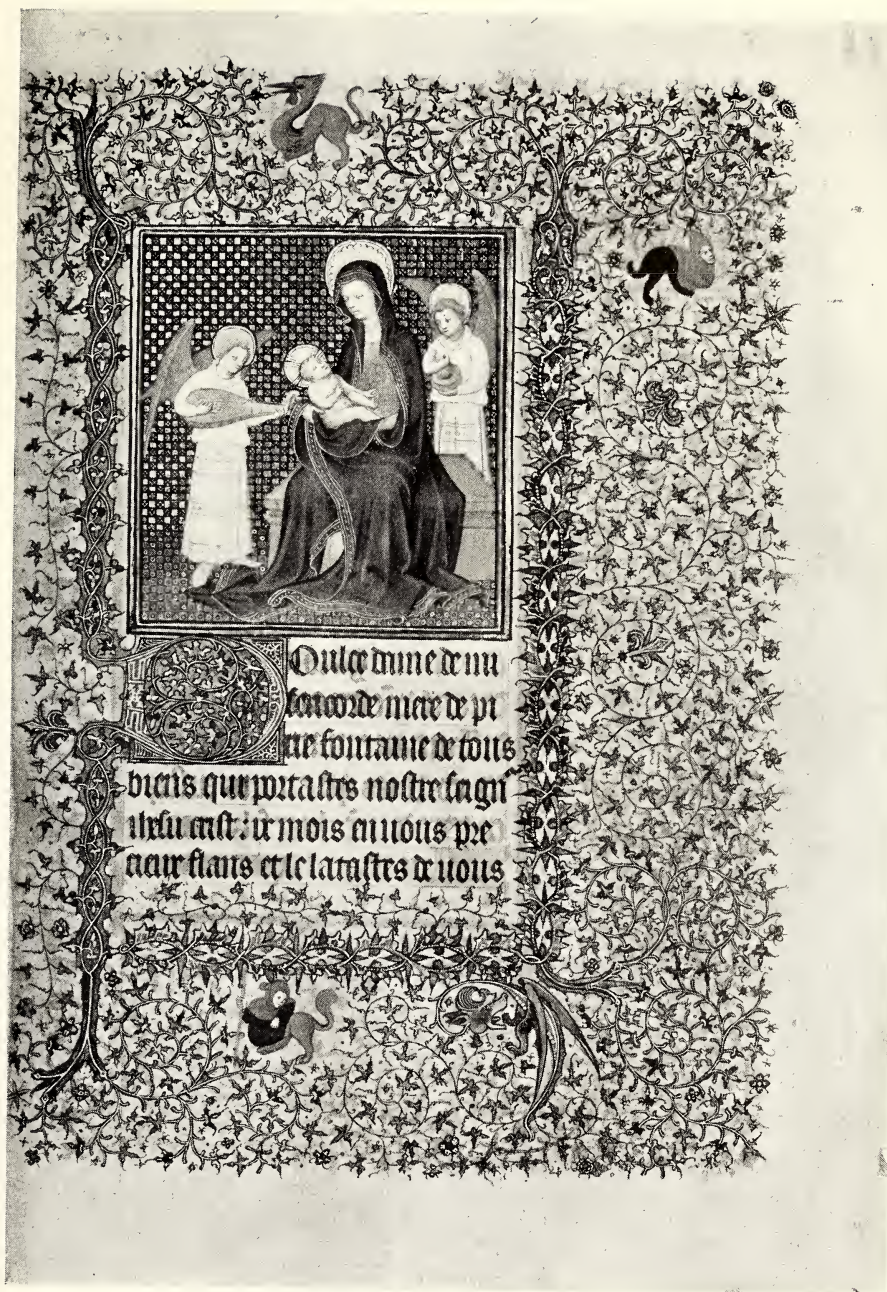 Doulce dame de mi
sericorde mere de pi
tie fontaine de tous
biens qui portastes nostre seign
ihesu crist: ix mois en uous pre
cieux flans et le latastes de uous